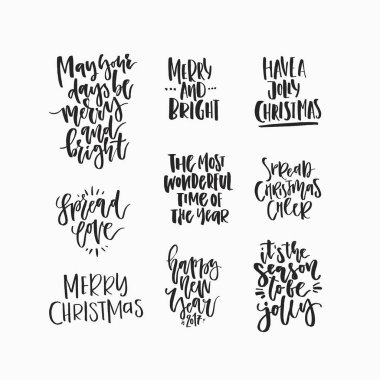 May your
days be
merry
and
bright
MERRY
AND
BRIGHT
HAVE A
JOLLY
CHRISTMAS
Spread
love
THE MOST
WONDERFUL
TIME OF
THE YEAR
SPREAD
CHRISTMAS
CHEER
MERRY
CHRISTMAS
happy
new
year
2017
it's the
season
to be
jolly